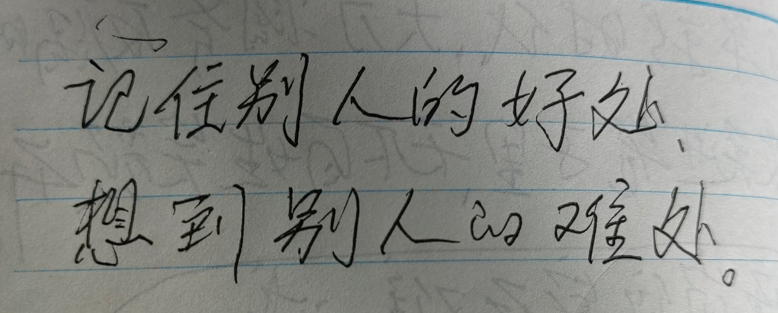 记住别人的好处、
想到别人的难处。